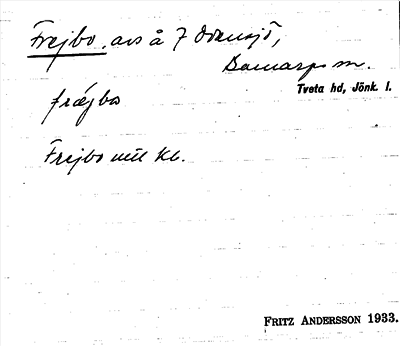 Frejbo, avs å 7 Ödensjö,
Barnarps sn.
Tveta hd, Jönk. l.
frǽjbo
Frejbo utl kb.
FRITZ ANDERSSON 1933.